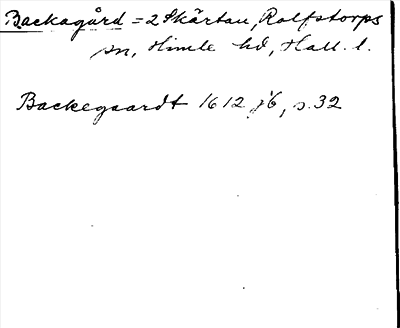 Backagård = 2 Skärtan, Rolfstorps
sn, Himle hd, Hall. l.
Backegaardt 1612 j6, s. 32